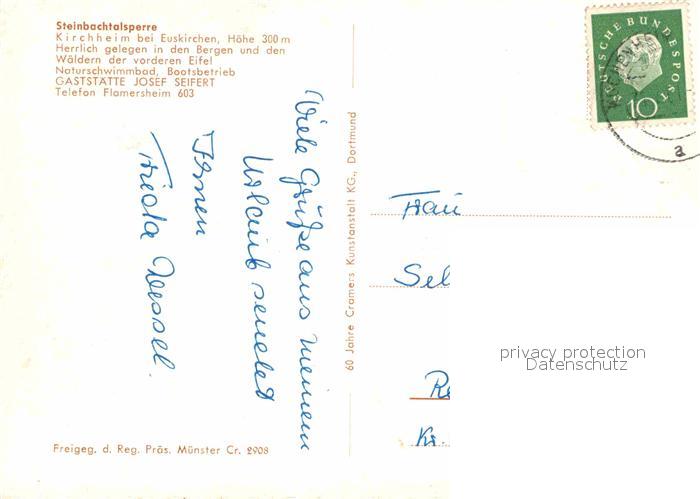 Steinbachtalsperre
Kirchheim bei Euskirchen, Höhe 300 m
Herrlich gelegen in den Bergen und den
Wäldern der vorderen Eifel
Naturschwimmbad, Bootsbetrieb
GASTSTÄTTE JOSEF SEIFERT
Telefon Flamersheim 603
Viele Grüße aus meinem
Urlaub sendet
Ihnen
Frieda Wessel.
Freigeg. d. Reg. Präs. Münster Cr. 2908
60 Jahre Cramers Kunstanstalt KG., Dortmund
DEUTSCHE BUNDESPOST
10
a
Frau
Sel
Re
Kr.
privacy protection
Datenschutz